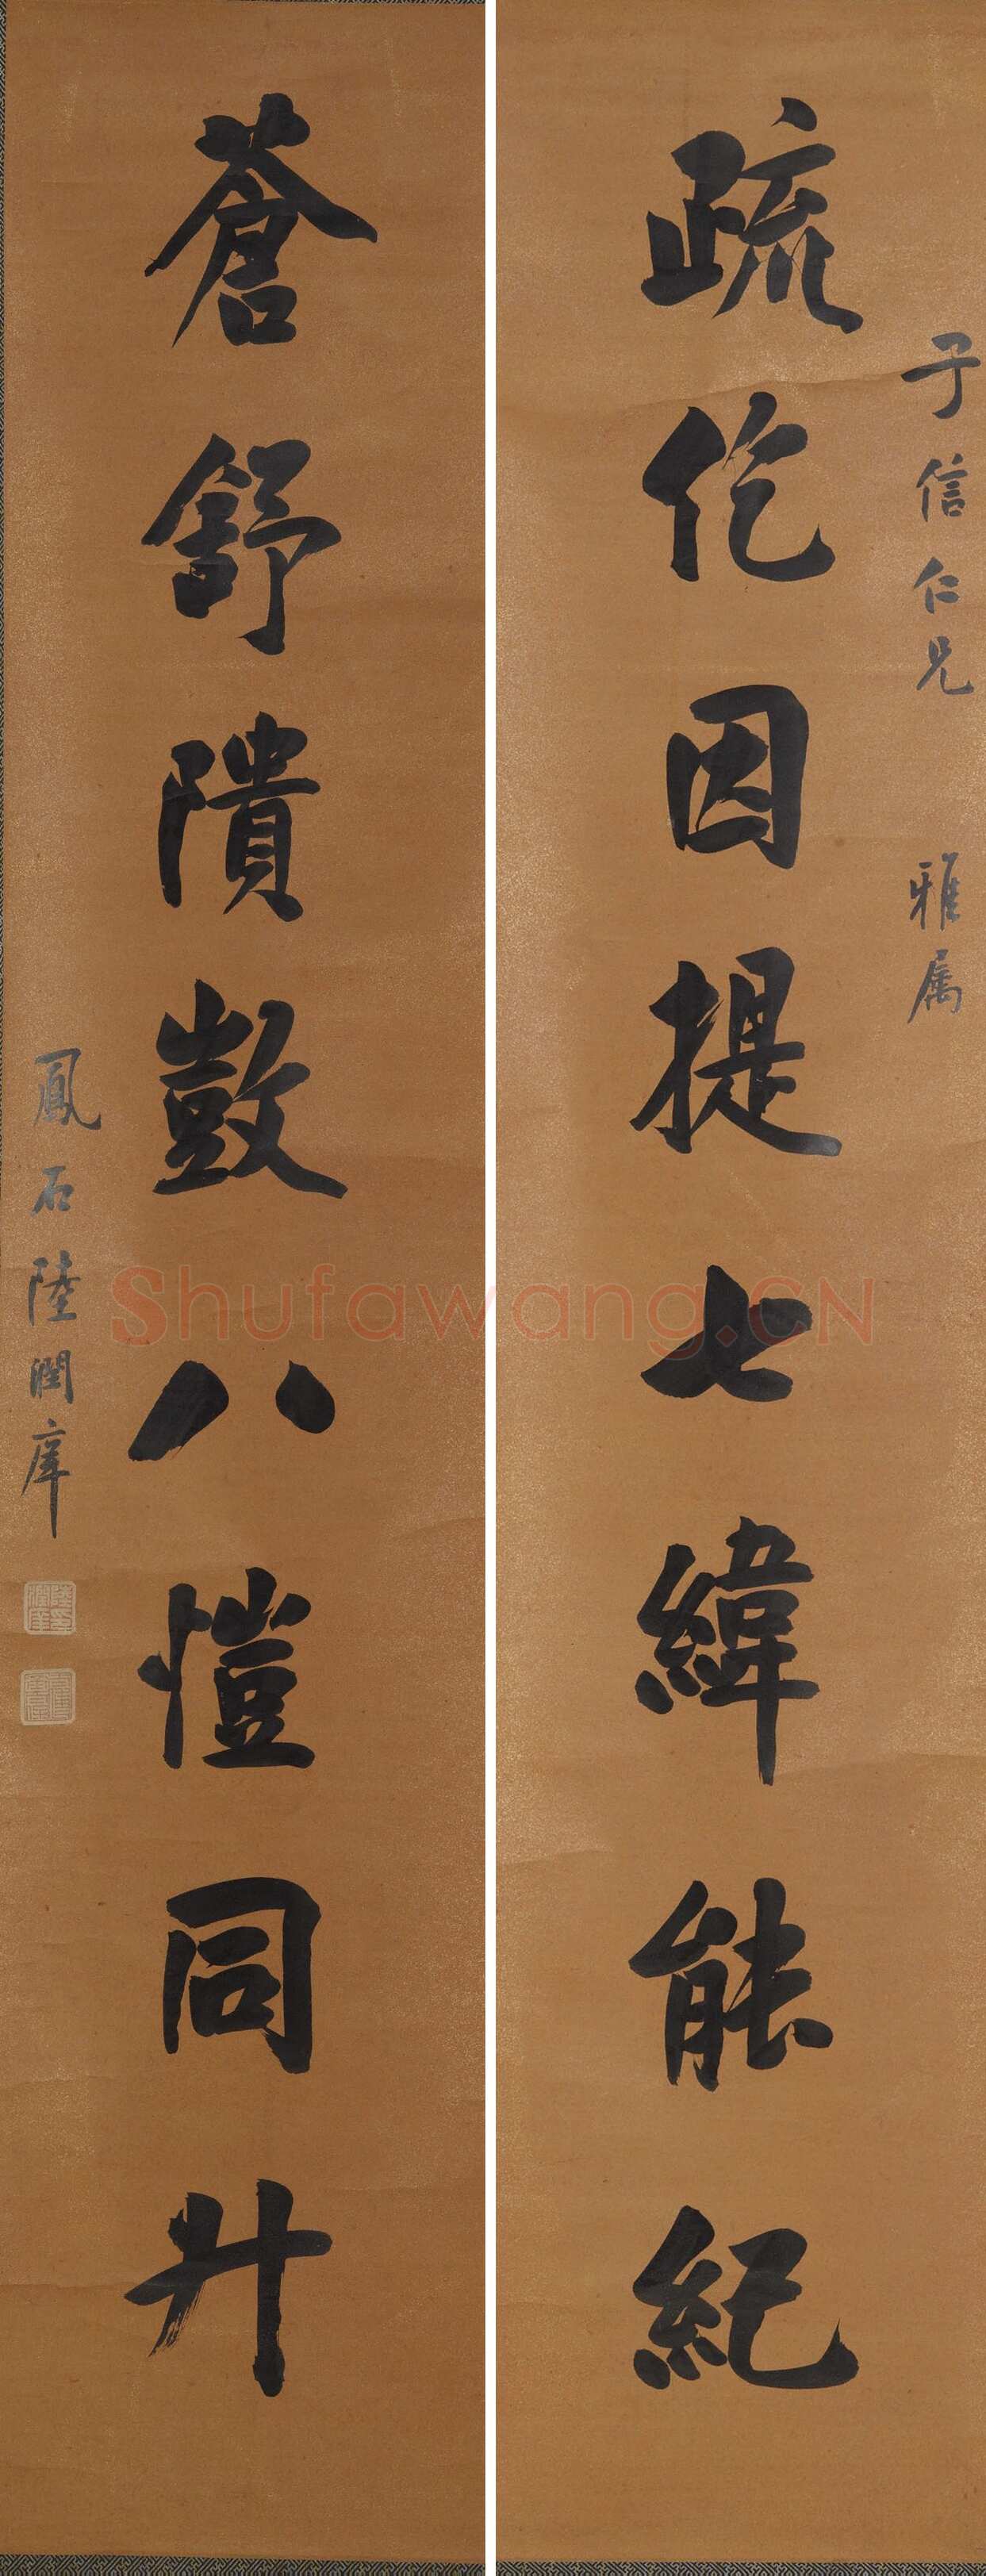 子信仁兄 雅属
疏仡因提七緯能紀
蒼舒隤敳八愷同升
鳳石陸潤庠
Shufawang.CN